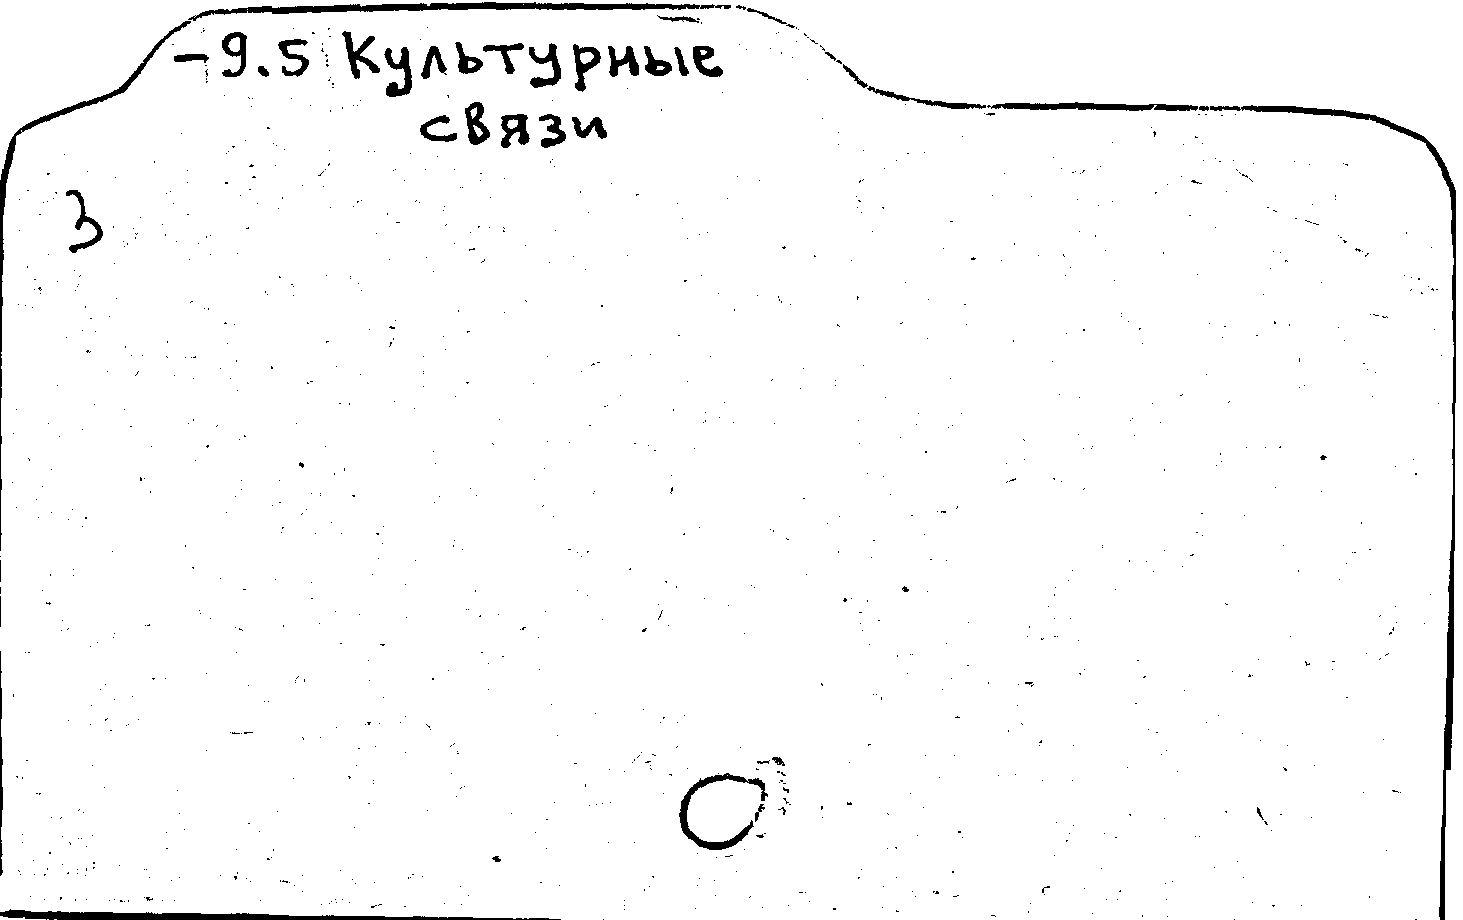 -9.5 Культурные
связи
3